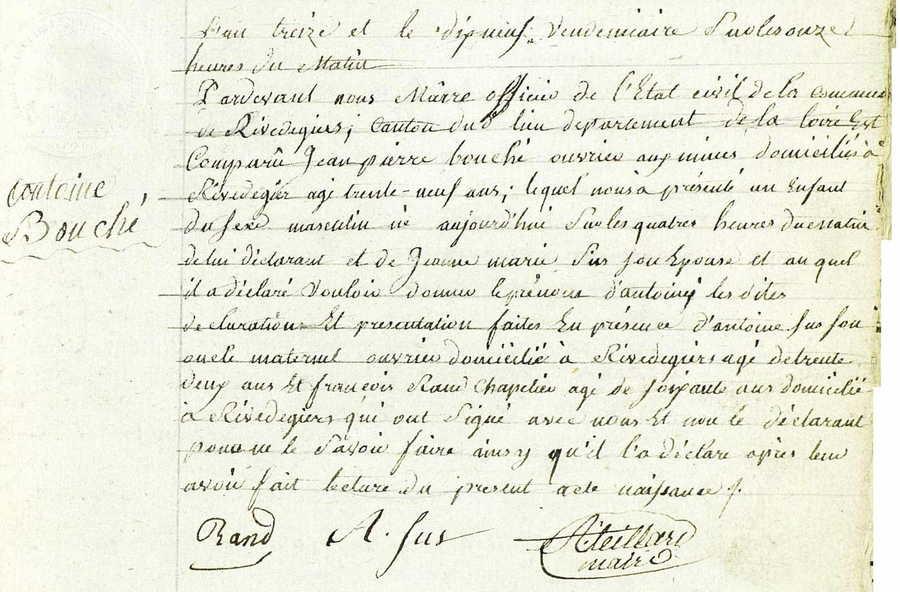 L'an treize et le dixneuf Vendemiaire Surlesonze
heures du Matin
Pardevant nous Maire officier de l'Etat civil de la commune
de Rivedegiers; Canton dud lieu departement de la loire Est
Comparû Jean pierre bouché ouvrier aux mines domicilié à
Rivedegier agé trente-neuf ans; lequel nous a présenté un Enfant
Antoine
Bouché
du Sexe masculin né aujourd'hui Surles quatres heures dumatin
de lui déclarant et de Jeanne marie Sus Son Epouse et auquel
il a déclaré Vouloir donner leprénom d'antoine les dites
declaration Et presentation faites En présence d'antoine Sus Son
oncle maternel ouvrier domicilié à Rivedegiers agé detrente
deux ans Et francois Rand Chapelier agé de Soixante ans domicilié
à Rivedegiers qui ont Signé avec nous Et non le déclarant
pour ne le Savoir faire ainsy qu'il l'a déclaré après leur
avoir fait lecture du present acte naissance
Rand A. Sus
maire